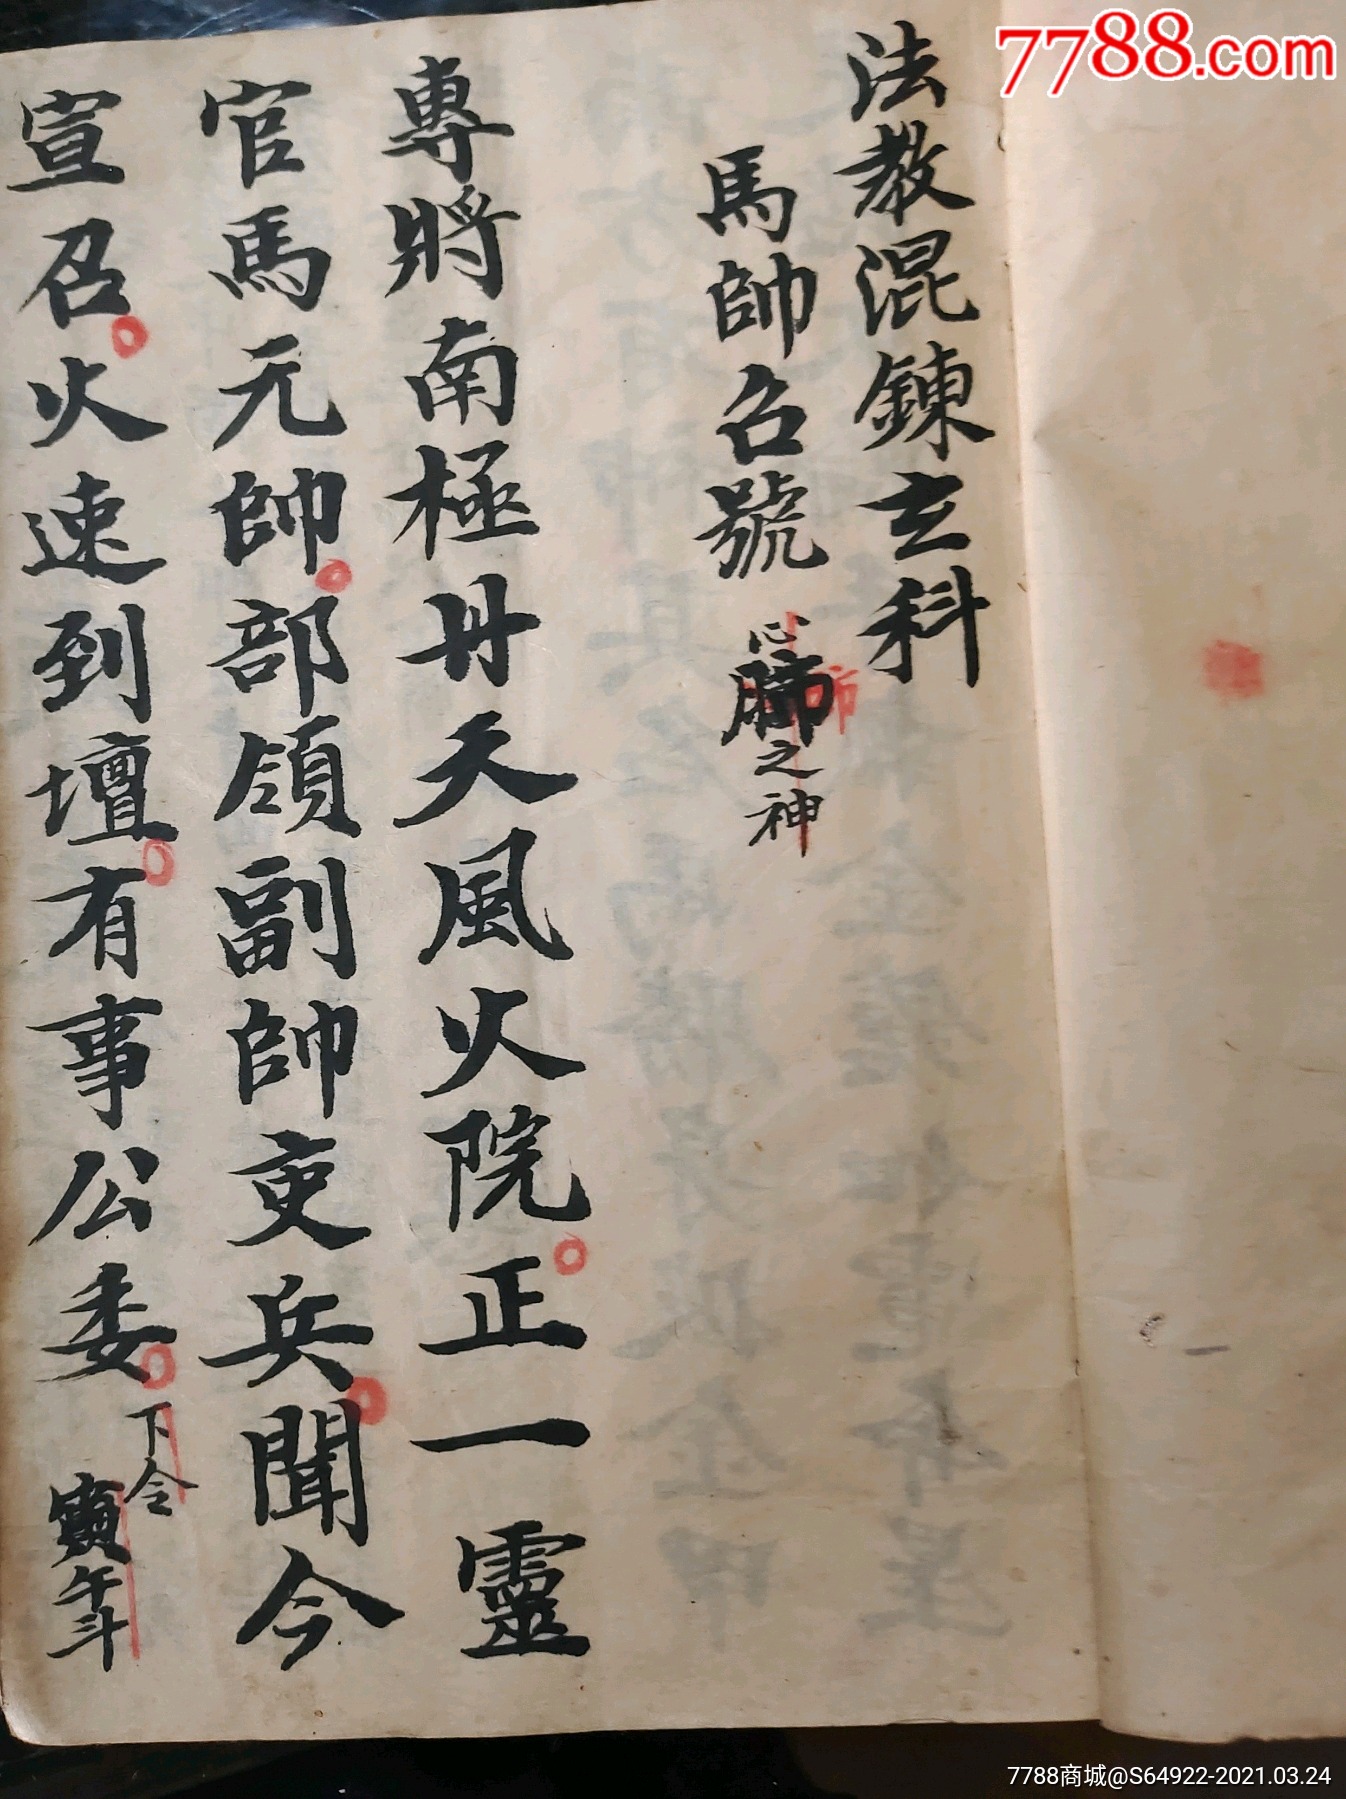 7788.com
法教混鍊玄科
馬帥召號
心
之神
專將南極丹天風火院正一靈
官馬元帥部領副帥吏兵聞今
宣召火速到壇有事公委
下令
寅午斗
7788商城@S64922-2021.03.24